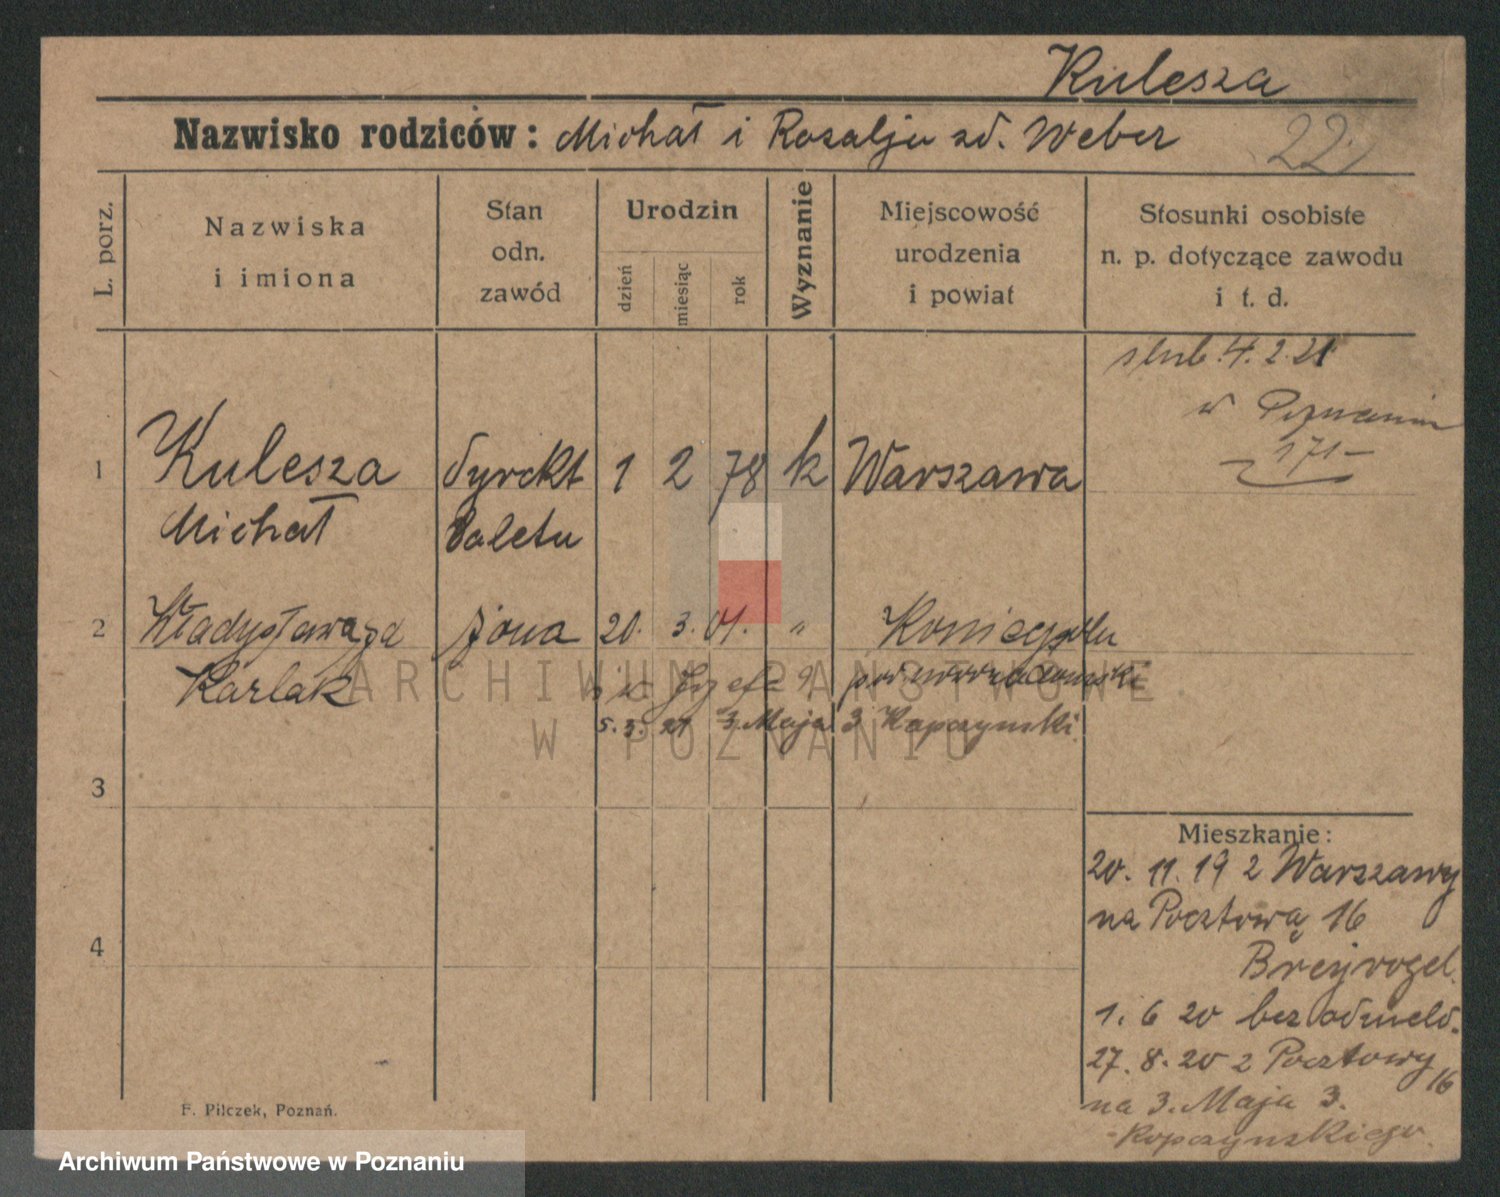 Kulesza
Nazwisko rodziców: Michał i Rozalja zd. Weber
22
L. porz.
Nazwiska
i imiona
Stan
odn.
zawód
Urodzin
dzień
miesiąc
rok
Wyznanie
Miejscowość
urodzenia
i powiat
Stosunki osobiste
n. p. dotyczące zawodu
i t. d.
ślub. 4. 2. 21
w Poznaniu
171-
1
Kulesza
Michał
dyrekt
baletu
1 2 78 k Warszawa
2
Władysława zd
Karlak
żona
20. 3. 01. „
5. 3. 21 3. Maja 3 Kopczynski
ARCHIWUM PAŃSTWOWE
W POZNANIU
3
4
Mieszkanie:
20. 11. 19 z Warszawy
na Pocztową 16
1. 6 20 bez odmeld.
27. 8. 20 z Pocztowy
16
na 3. Maja 3.
Kopczynskiego
F. Pilczek, Poznań.
Archiwum Państwowe w Poznaniu